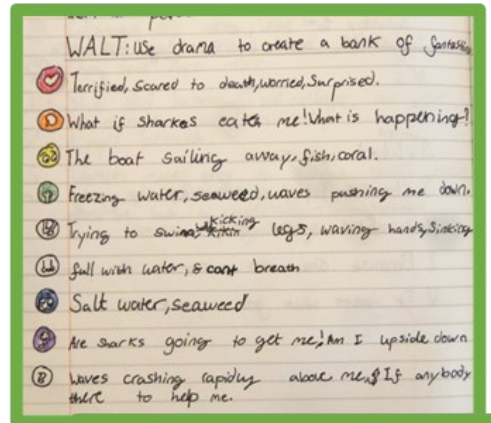 WALT: Use drama to create a bank of fantastic
Terrified, scared to death, worried, Surprised.
What if sharkes eats me! What is happening?
The boat sailing away, fish, coral.
Freezing water, seaweed, waves pushing me down.
Trying to swim, kicking legs, waving hands, sinking
full with water, & cant breath
Salt water, seaweed
Are sharks going to get me! Am I upside down
Waves crashing rapidly above me, & If anybody
there to help me.